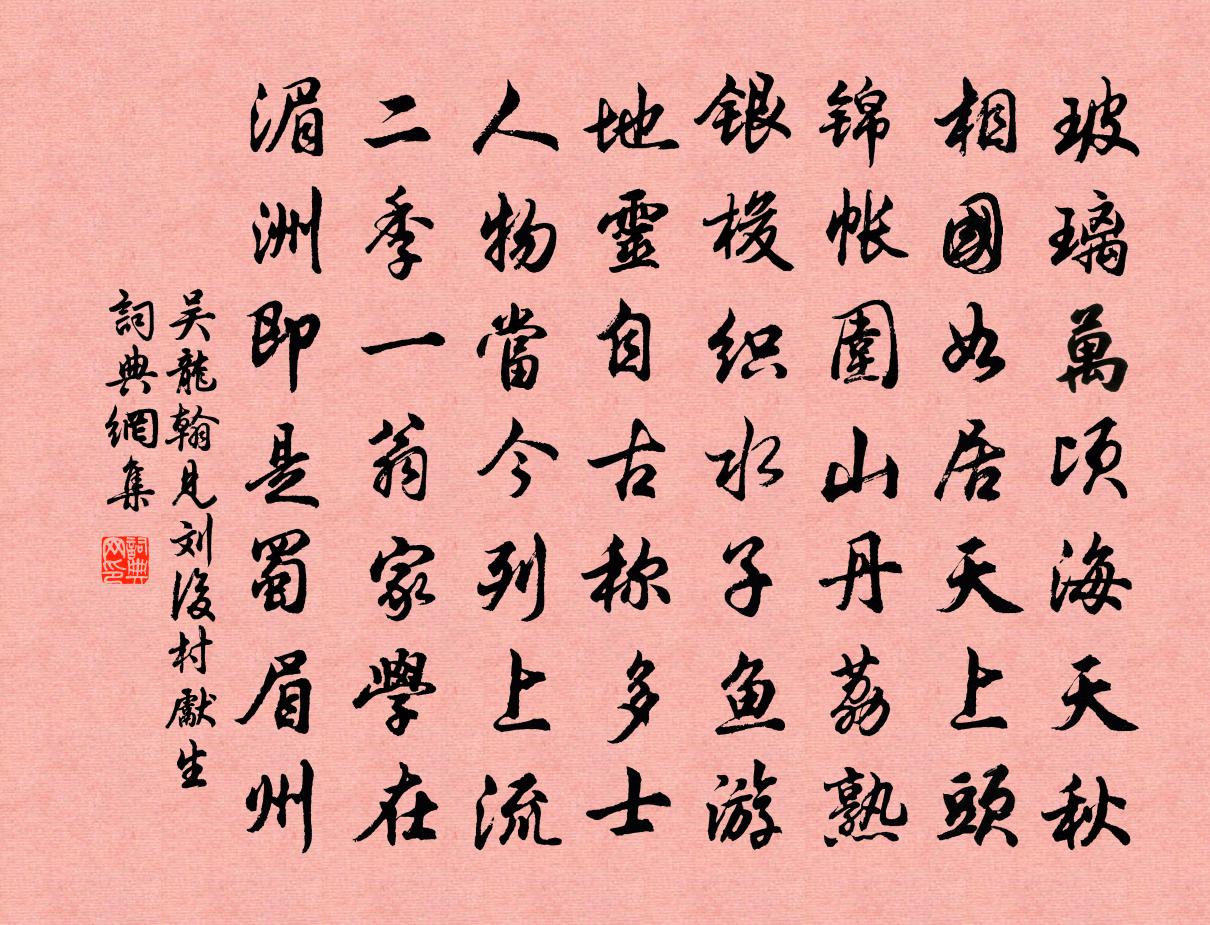 玻璃萬頃海天秋
相國如居天上頭
锦帐圍山丹荔熟
銀梭织水子鱼游
地靈自古称多士
人物當今列上流
二季一翁家學在
湄洲即是蜀眉州
吴龍翰見刘後村獻生
詞典網集
詞典网印